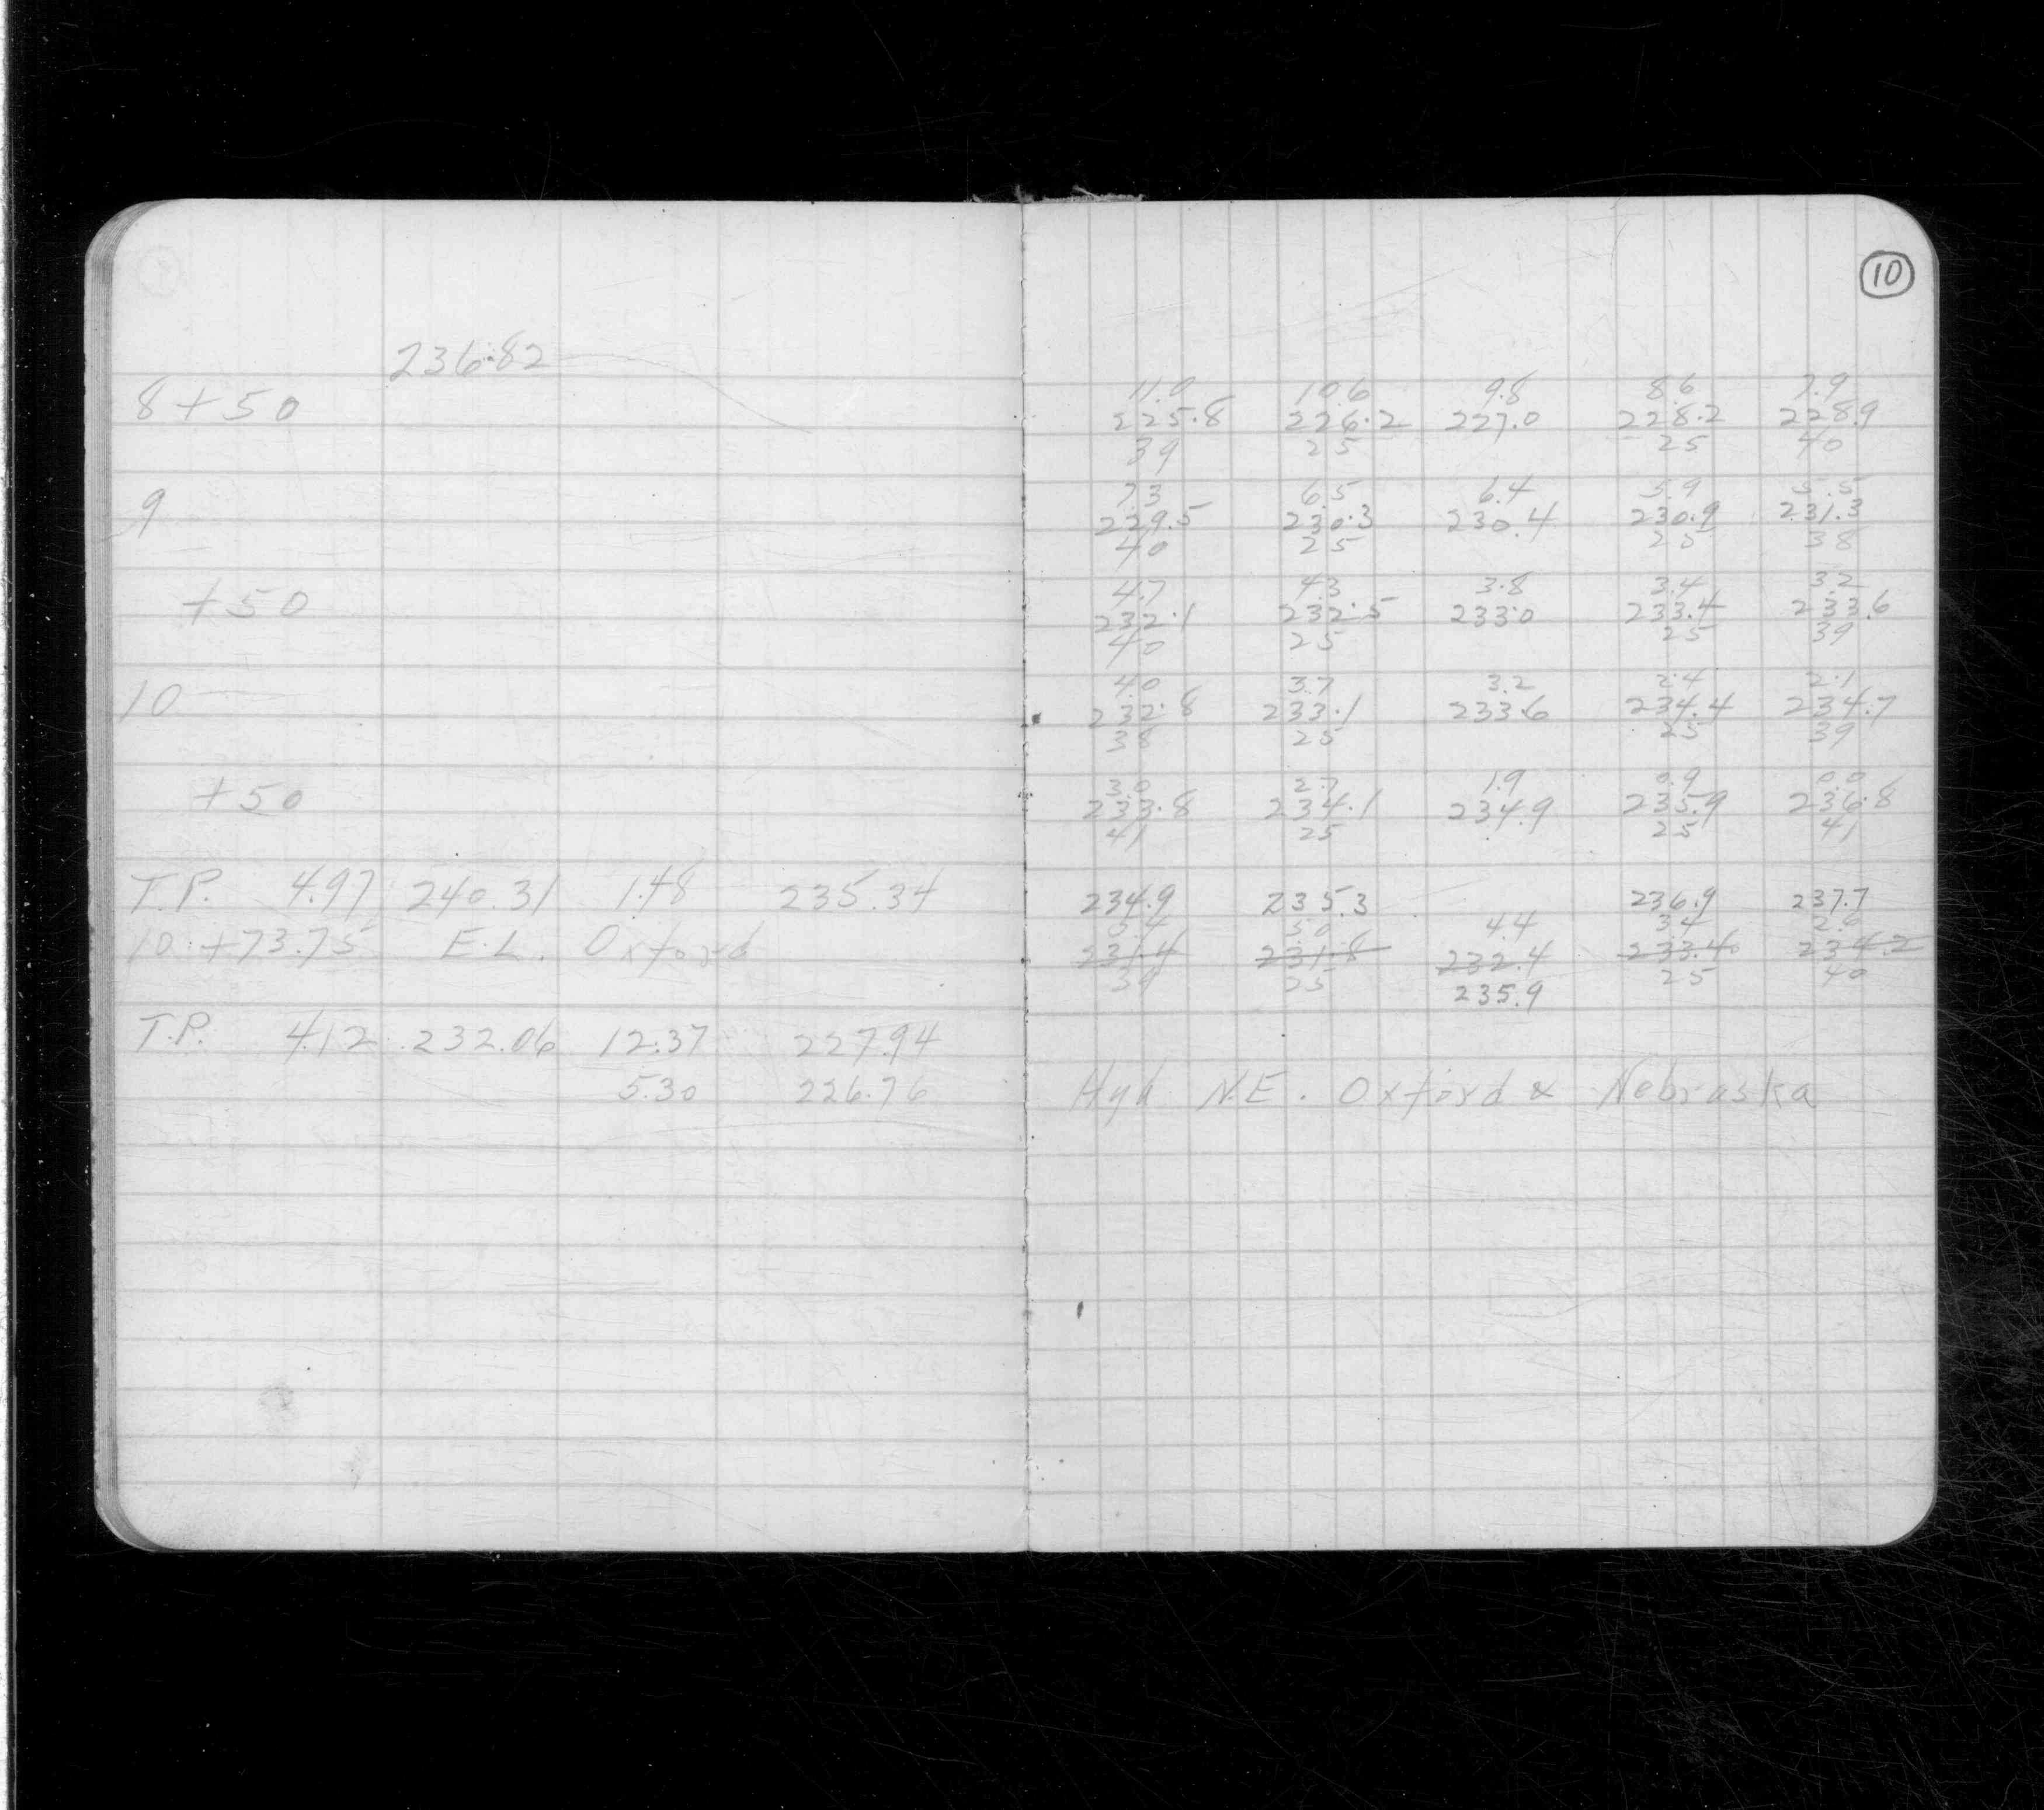 10
236.82
11.0 10.6 9.8 8.6 7.9
8+50 225.8 226.2 227.0 228.2 228.9
39 25 25 40
7.3 6.5 6.4 5.9 5.5
9 229.5 230.3 230.4 230.9 231.3
40 25 25 38
4.7 4.3 3.8 3.4 3.2
+50 232.1 232.5 233.0 233.4 233.6
40 25 25 39
4.0 3.7 3.2 2.4 2.1
10 232.8 233.1 233.6 234.4 234.7
38 25 25 39
3.0 2.7 1.9 0.9 0.0
+50 233.8 234.1 234.9 235.9 236.8
41 25 25 41
T.P. 4.97 240.31 1.48 235.34 234.9 235.3 236.9 237.7
5.4 5.0 4.4 3.4 2.6
10+73.75 E.L. Oxford 231.4 231.8 232.4 233.4 234.2
39 25 25 40
235.9
T.P. 4.12 232.06 12.37 227.94
5.30 226.76 Hyd N.E. Oxford & Nebraska